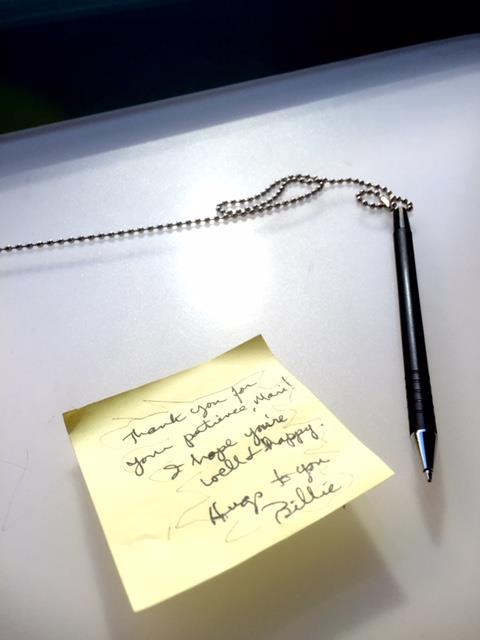 Thank you for
your patience, Mari!
I hope you're
well & happy.
Hugs to you
Billie